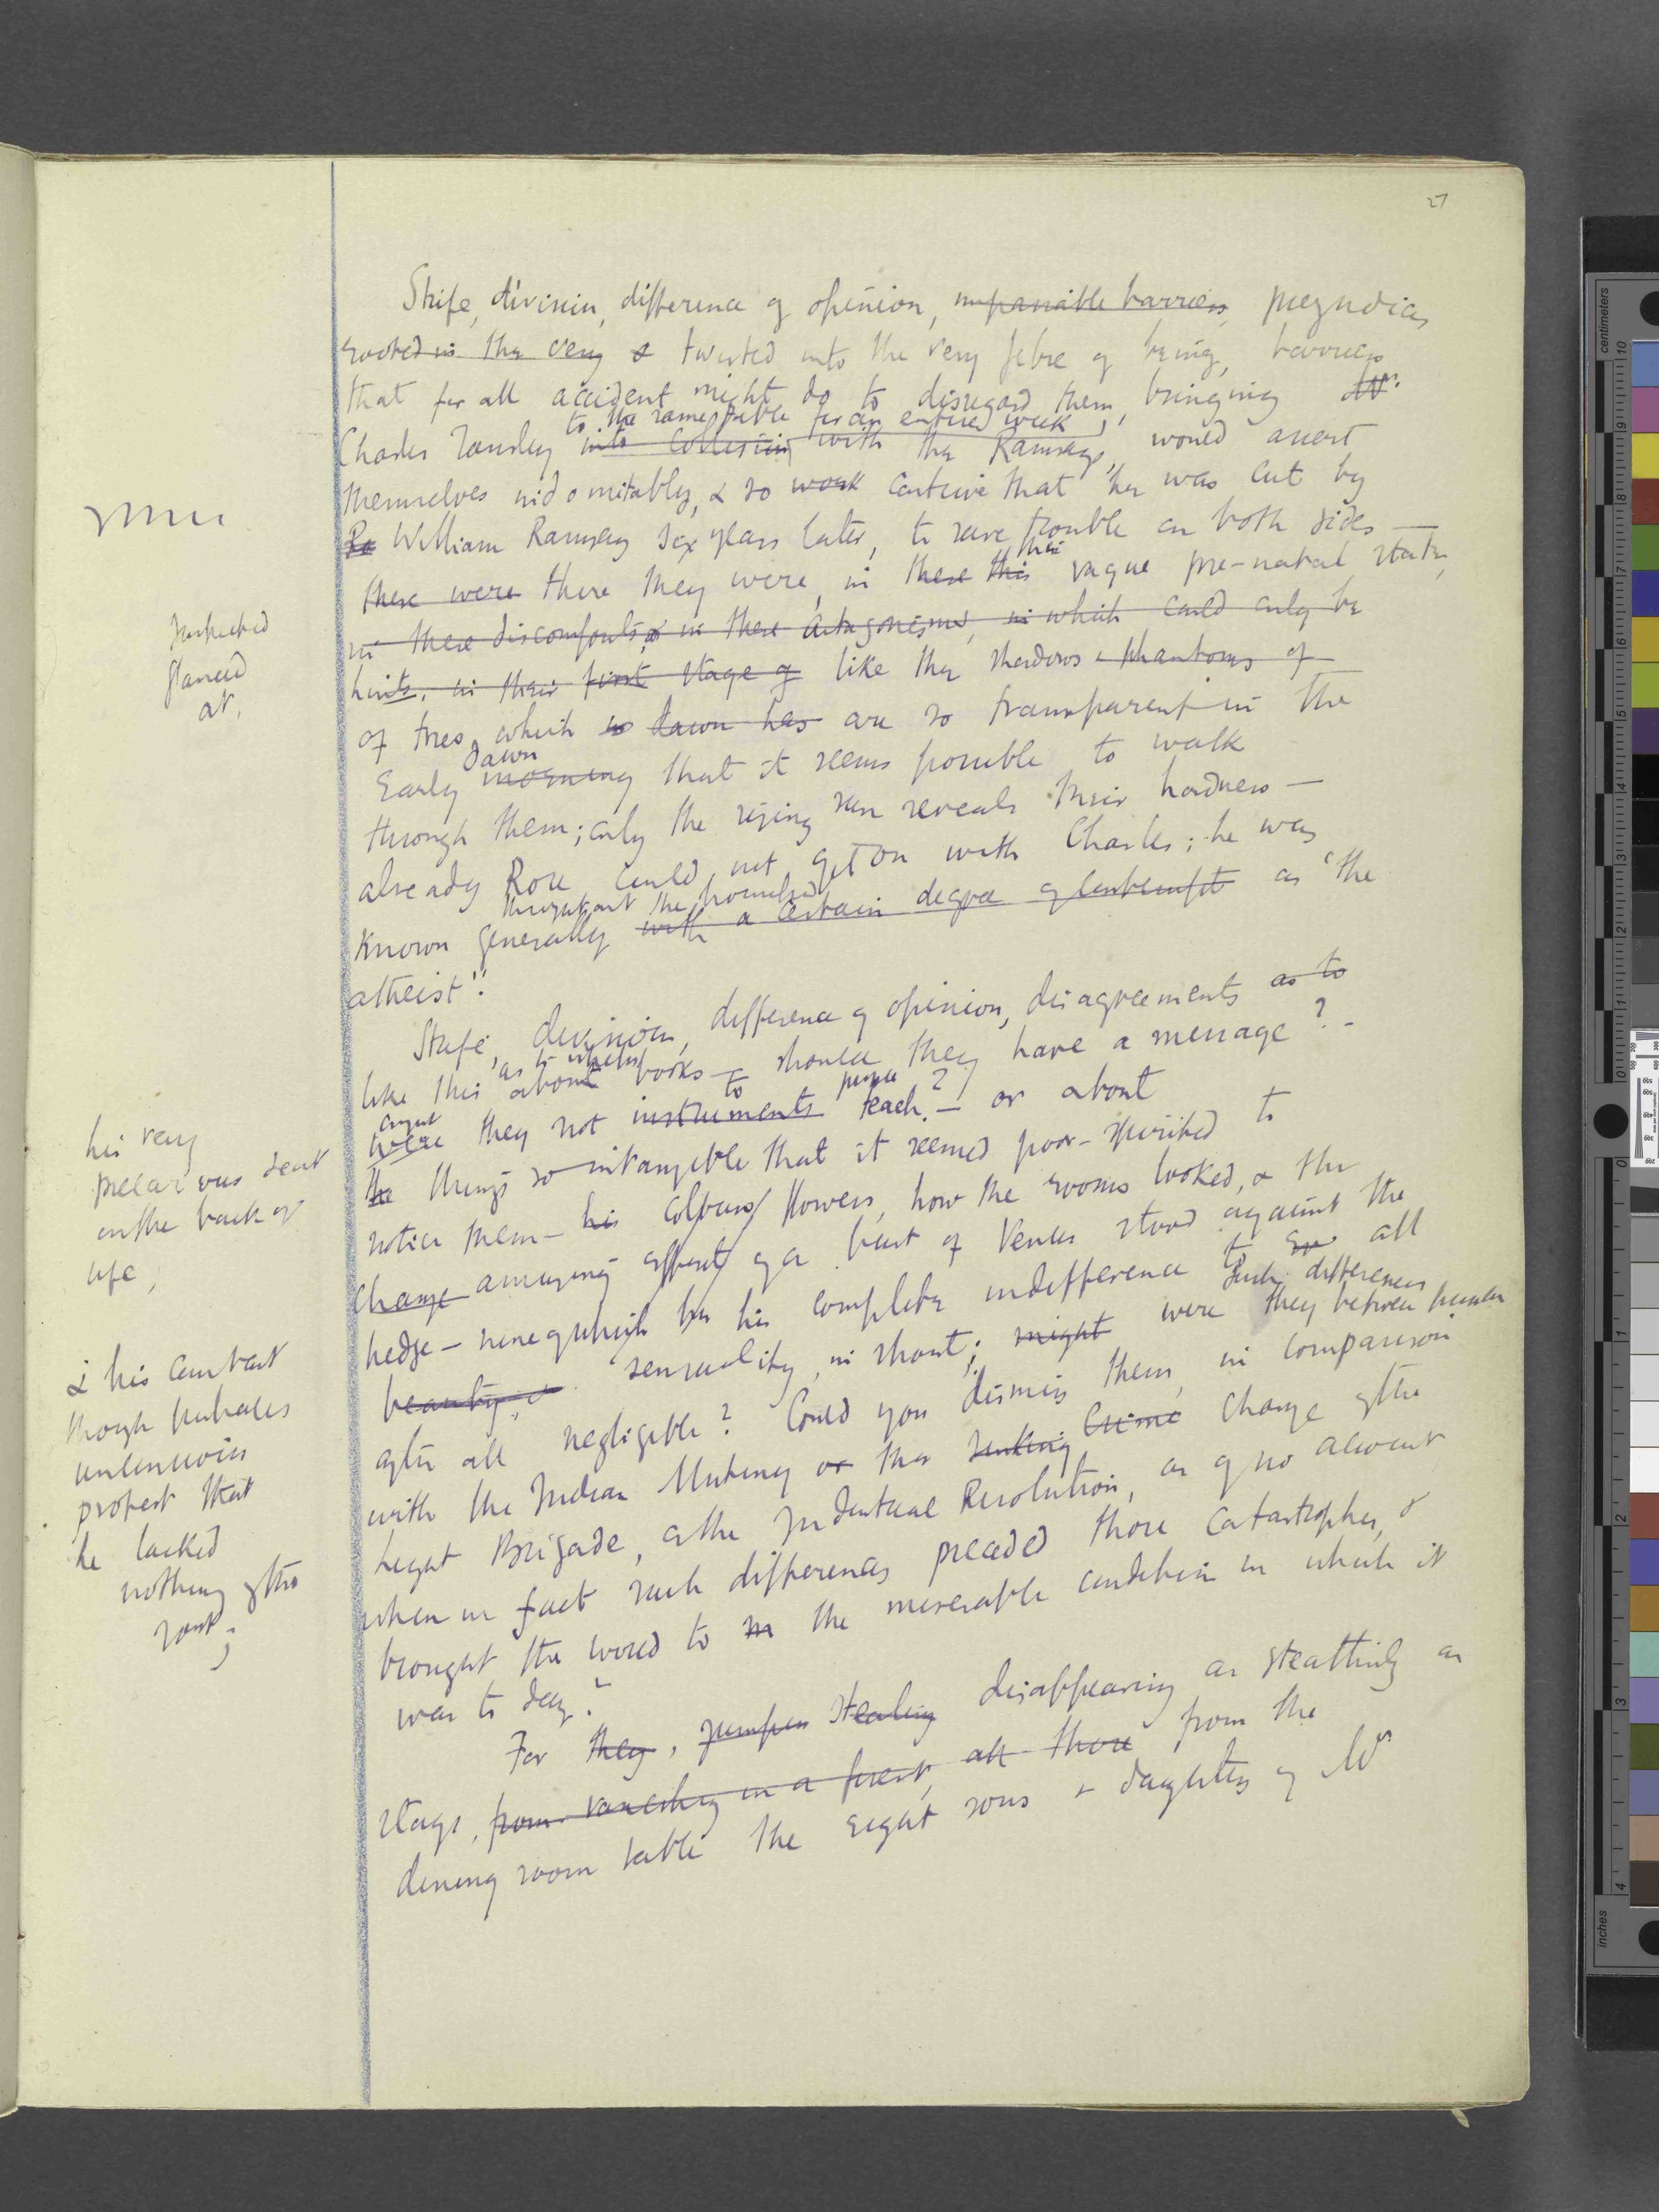 27
Strife, division, difference of opinion, impassable barriers, prejudices
rooted in the very & twisted into the very fibre of being, barriers
that for all accident might do to disregard them, bringing Mr.
to the same table for an entire week,
Charles Tansley into collision with the Ramsays, would assert
themselves indomitably, & so work contrive that he was cut by
Ra William Ramsay six years later, to save trouble on both sides —
their
these were there they were, in these this vague pre-natal state,
in these discomforts, & in these antagonisms, in which could only be
hints, in their first stage of like the shadows & phantoms of
of trees which so dawn has are so transparent in the
dawn
Early morning that it seems possible to walk
through them; only the rising sun reveals their hardness —
already Rose could not get on with Charles; he was
throughout the household
known generally with a certain degree of contempt as "the
atheist".
Strife, division, difference of opinion, disagreements as to
as to whether
like this about books — should they have a message? -
ought to people?
were they not instruments teach. — or about
the things so intangible that it seemed poor-spirited to
notice them — his colours/ flowers, how the rooms looked, & the
change amusing effect/ of a bust of Venus stood against the
hedge — none of which his complete indifference to all
such differences
beauty, & sensuality, in short; might were they between human
after all negligible? Could you dismiss them, in comparison
with the Indian Mutiny or the sinking Crime Charge of the
Light Brigade, or the Industrial Revolution, as of no account
when in fact such differences preceded those catastrophes, &
brought the world to in the miserable condition in which it
was to day?
For they, stealing disappearing as stealthily as
stags, from vanishing in a forest, all those from the
dining room table the eight sons & daughters of Mr
glanced
at,
his very
was sent
on the back of
life,
& his contempt
though perhaps
unconscious
protest that
he lacked
nothing of the
sort;